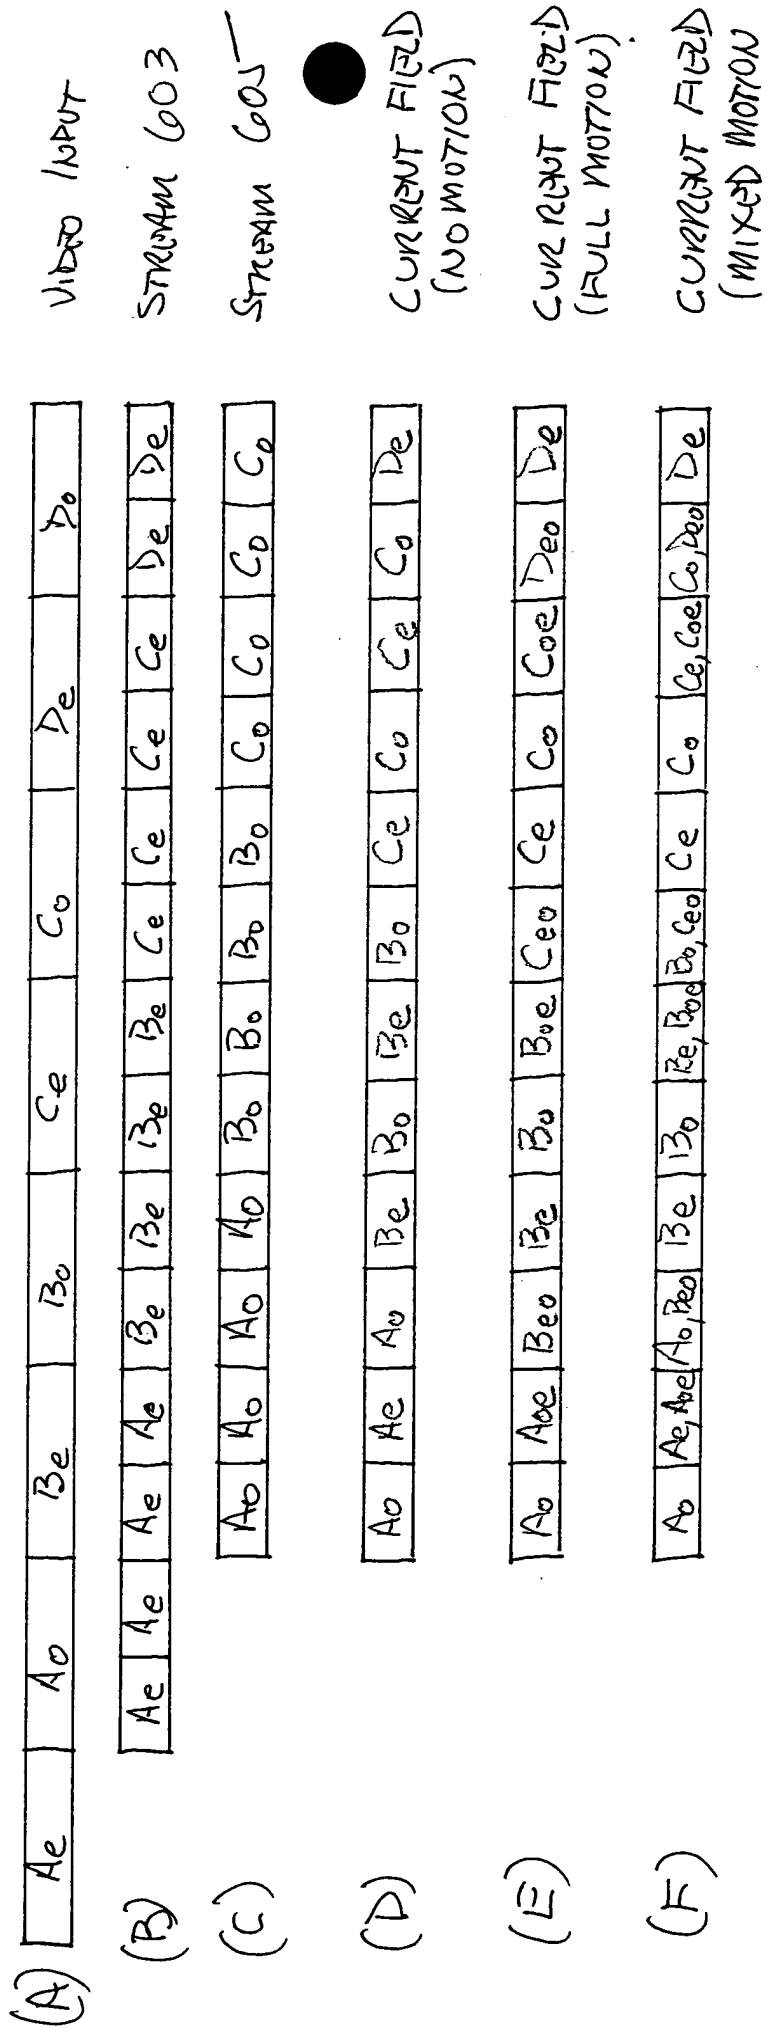 (A) Ae Ao Be Bo Ce Co De Do VIDEO INPUT
(B) Ae Ae Ae Ae Be Be Be Be Ce Ce Ce Ce De De STREAM 603
(C) Ao Ao Ao Ao Bo Bo Bo Bo Co Co Co Co STREAM 605
(D) Ao Ae Ao Be Bo Be Bo Ce Co Ce Co De CURRENT FIELD
(NO MOTION)
(E) Ao Aoe Beo Be Bo Boe Ceo Ce Co Coe Deo De CURRENT FIELD
(FULL MOTION)
(F) Ao Ae, Aoe Ao, Beo Be Bo Be, Boe Bo, Ceo Ce Co Ce, Coe Co, Deo De CURRENT FIELD
(MIXED MOTION